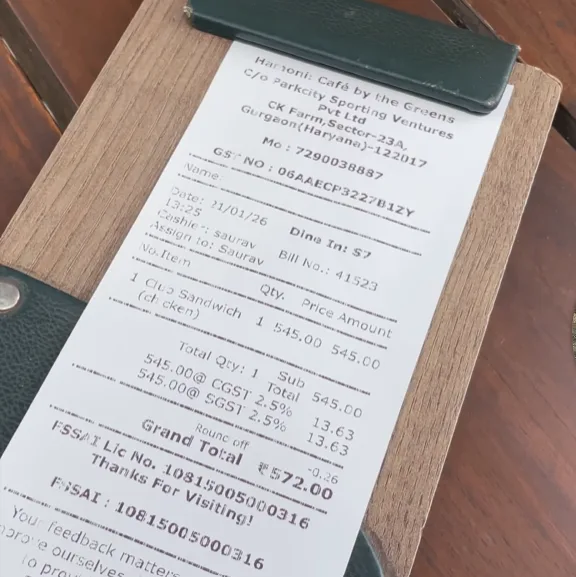 Harmoni: Café by the Greens
C/o Parkcity Sporting Ventures
Pvt Ltd
CK Farm,Sector-23A,
Gurgaon(Haryana)-122017
Mo : 7290038887
GST NO : 06AAECP3227B1ZY
Name:
Date: 21/01/26 Dine In: S7
13:25
Cashier: saurav Bill No.: 41523
Assign to: Saurav
No.Item Qty. Price Amount
1 Club Sandwich 1 545.00 545.00
(chicken)
Total Qty: 1 Sub Total 545.00
545.00@ CGST 2.5% 13.63
545.00@ SGST 2.5% 13.63
Round off -0.26
Grand Total ₹572.00
FSSAI Lic No. 10815005000316
Thanks For Visiting!
FSSAI : 10815005000316
Your feedback matters
improve ourselves
to provi